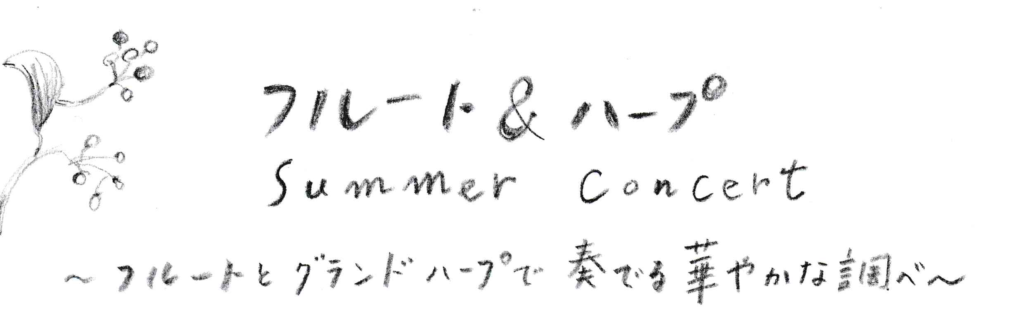 フルート & ハープ
Summer Concert
～フルートとグランドハープで奏でる華やかな調べ～